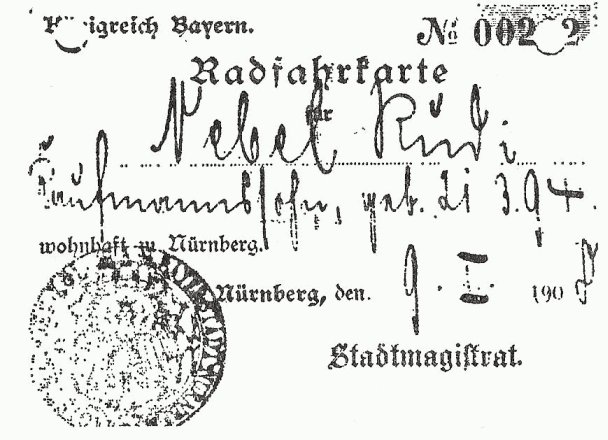 Königreich Bayern.
№ 002 2
Radfahrkarte
für
Nebel Rudi
Kaufmannssohn, geb. 21 3.94.
wohnhaft in Nürnberg.
Nürnberg, den. 9. II 190
Stadtmagistrat.